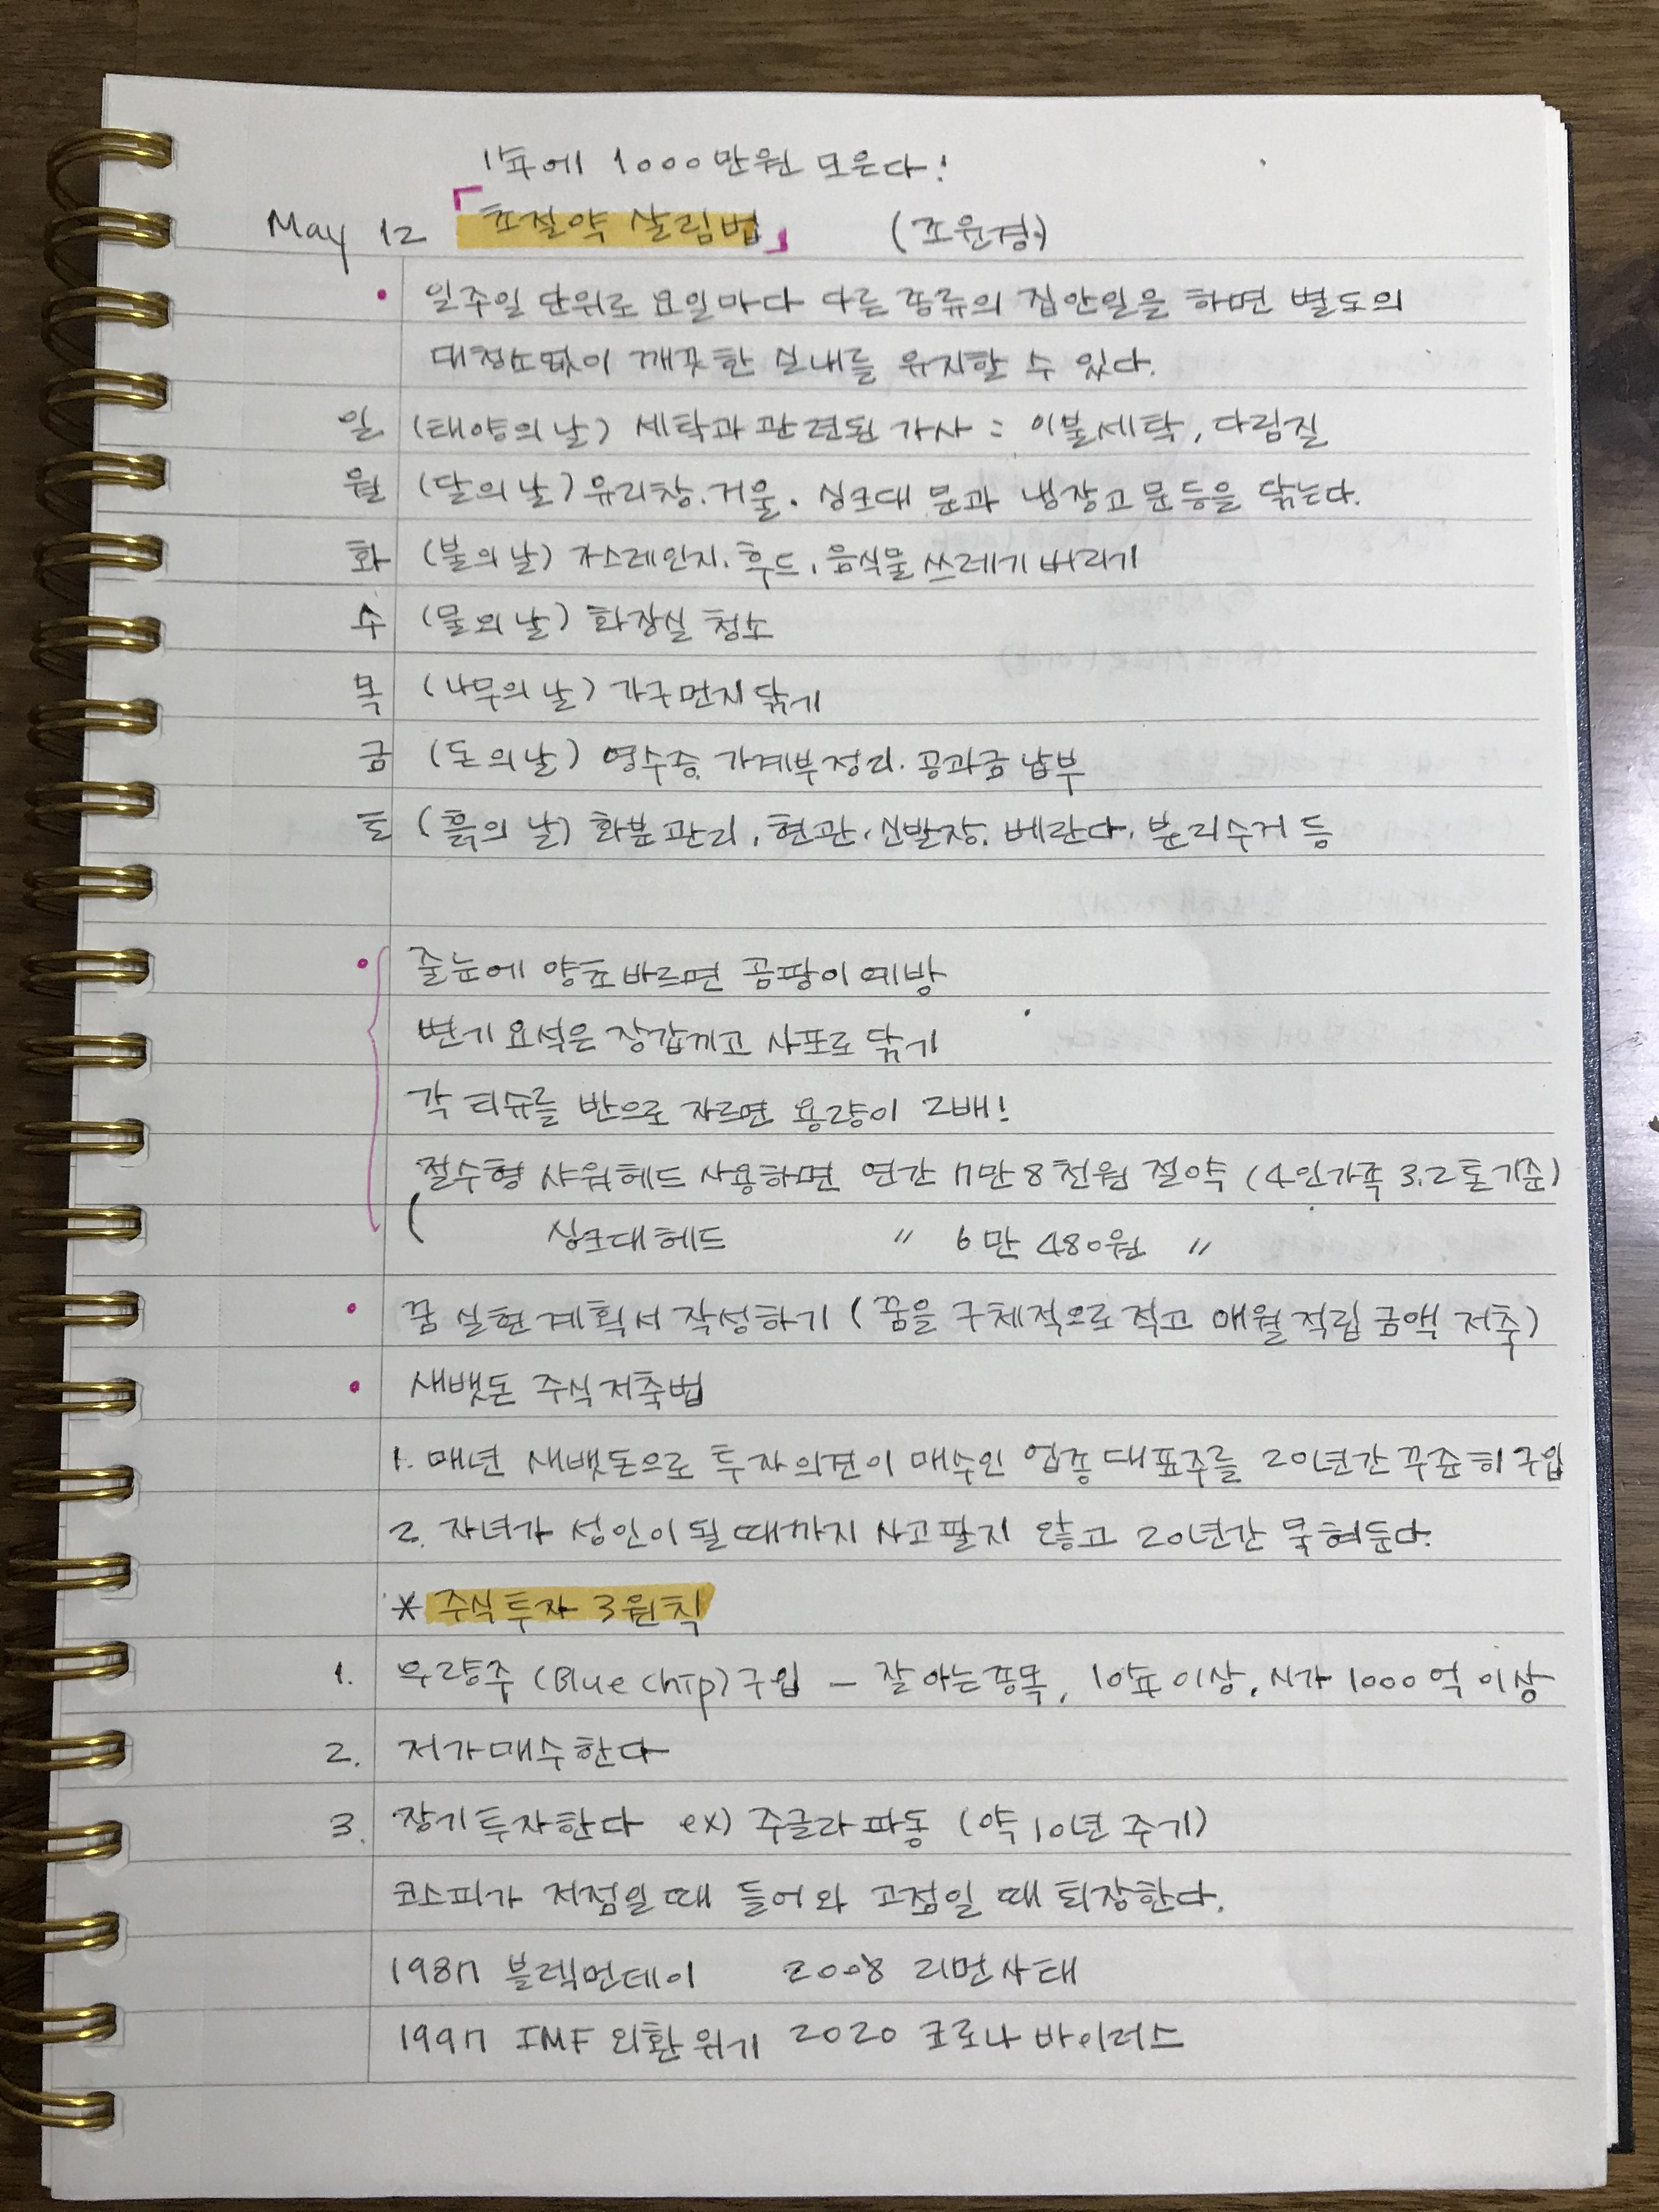 1년에 1000만원 모은다!
May 12 「초절약 살림법」 (조윤경)
• 일주일 단위로 요일마다 다른 종류의 집안일을 하면 별도의
대청소없이 깨끗한 실내를 유지할 수 있다.
일 (태양의 날) 세탁과 관련된 가사 : 이불세탁, 다림질
월 (달의 날) 유리창. 거울. 싱크대 문과 냉장고 문 등을 닦는다.
화 (불의 날) 가스레인지. 후드, 음식물 쓰레기 버리기
수 (물의 날) 화장실 청소
목 (나무의 날) 가구먼지 닦기
금 (돈의 날) 영수증, 가계부정리. 공과금 납부
토 (흙의 날) 화분관리, 현관, 신발장, 베란다. 분리수거 등
• 줄눈에 양초바르면 곰팡이 예방
변기 요석은 장갑끼고 사포로 닦기
각 티슈를 반으로 자르면 용량이 2배!
절수형 샤워헤드 사용하면 연간 7만 8천원 절약 (4인가족 3.2톤기준)
( 싱크대헤드 〃 6만 480원 〃
• 꿈 실현 계획서 작성하기 (꿈을 구체적으로 적고 매월 적립 금액 저축)
• 새뱃돈 주식저축법
1. 매년 새뱃돈으로 투자의견이 매수인 업종 대표주를 20년간 꾸준히 구입
2. 자녀가 성인이 될때까지 사고팔지 않고 20년간 묵혀둔다.
* 주식투자 3원칙
1. 우량주 (Blue chip) 구입 – 잘 아는종목, 10년 이상, 시가 1000억 이상
2. 저가매수한다
3. 장기투자한다 ex) 주글라파동 (약 10년 주기)
코스피가 저점일 때 들어와 고점일 때 퇴장한다.
1987 블렉먼데이 2008 리먼사태
1997 IMF 외환위기 2020 코로나 바이러스